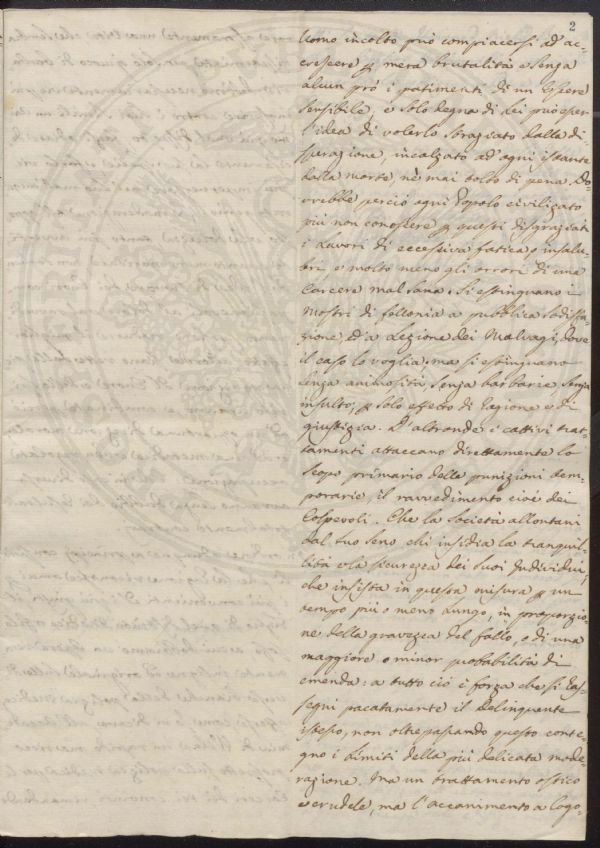 2
Uomo incolto può compiacersi ad ac-
crescere p mera brutalità e senza
alcun prò i patimenti di un Essere
sensibile, e solo degna di Lei può esser
l'idea di volerlo straziato dalla di-
sperazione, incalzato ad ogni istante
dalla morte, nè mai tolto di pena. Do-
vrebbe perciò ogni Popolo civilizato
più non conoscere p questi disgraziati
i Lavori di eccessiva fatica, o insalu-
bri, e molto meno gli orrori di una
Carcere mal sana. Si estinguano i
Mostri di fellonia a pubblica sodisfa-
zione, ed a Lezione dei Malvagi, dove
il caso lo voglia; ma si estinguano
senza animosità, senza barbarie, senza
insulto; p solo effetto di ragione e di
giustizia. D'altronde i cattivi trat-
tamenti attaccano direttamente lo
scopo primario delle punizioni tem-
porarie, il ravvedimento cioè dei
Colpevoli. Che la Società allontani
dal suo seno chi insidia la tranquil-
lità o la sicurezza dei suoi Individui,
che insista in questa misura p un
tempo più o meno Lungo, in proporzio-
ne della gravezza del fallo, o di una
maggiore o minor probabilità di
emenda: a tutto ciò è forza che si ras-
segni pacatamente il delinquente
istesso, non oltrepassando questo conte-
gno i Limiti della più delicata mode-
razione. Ma un trattamento ostico
e crudele, ma l'accanimento a logo-